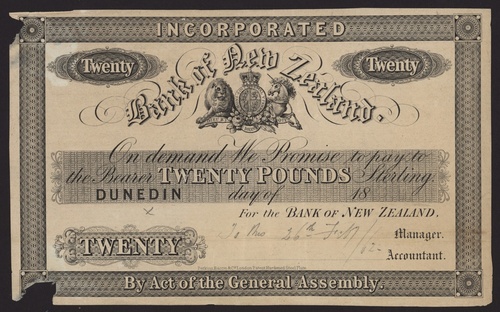 INCORPORATED
Twenty Twenty
Bank of New Zealand.
On demand We Promise to pay to
the Bearer TWENTY POUNDS Sterling.
DUNEDIN day of 18
x For the BANK OF NEW ZEALAND.
26th Manager.
TWENTY Accountant.
By Act of the General Assembly.